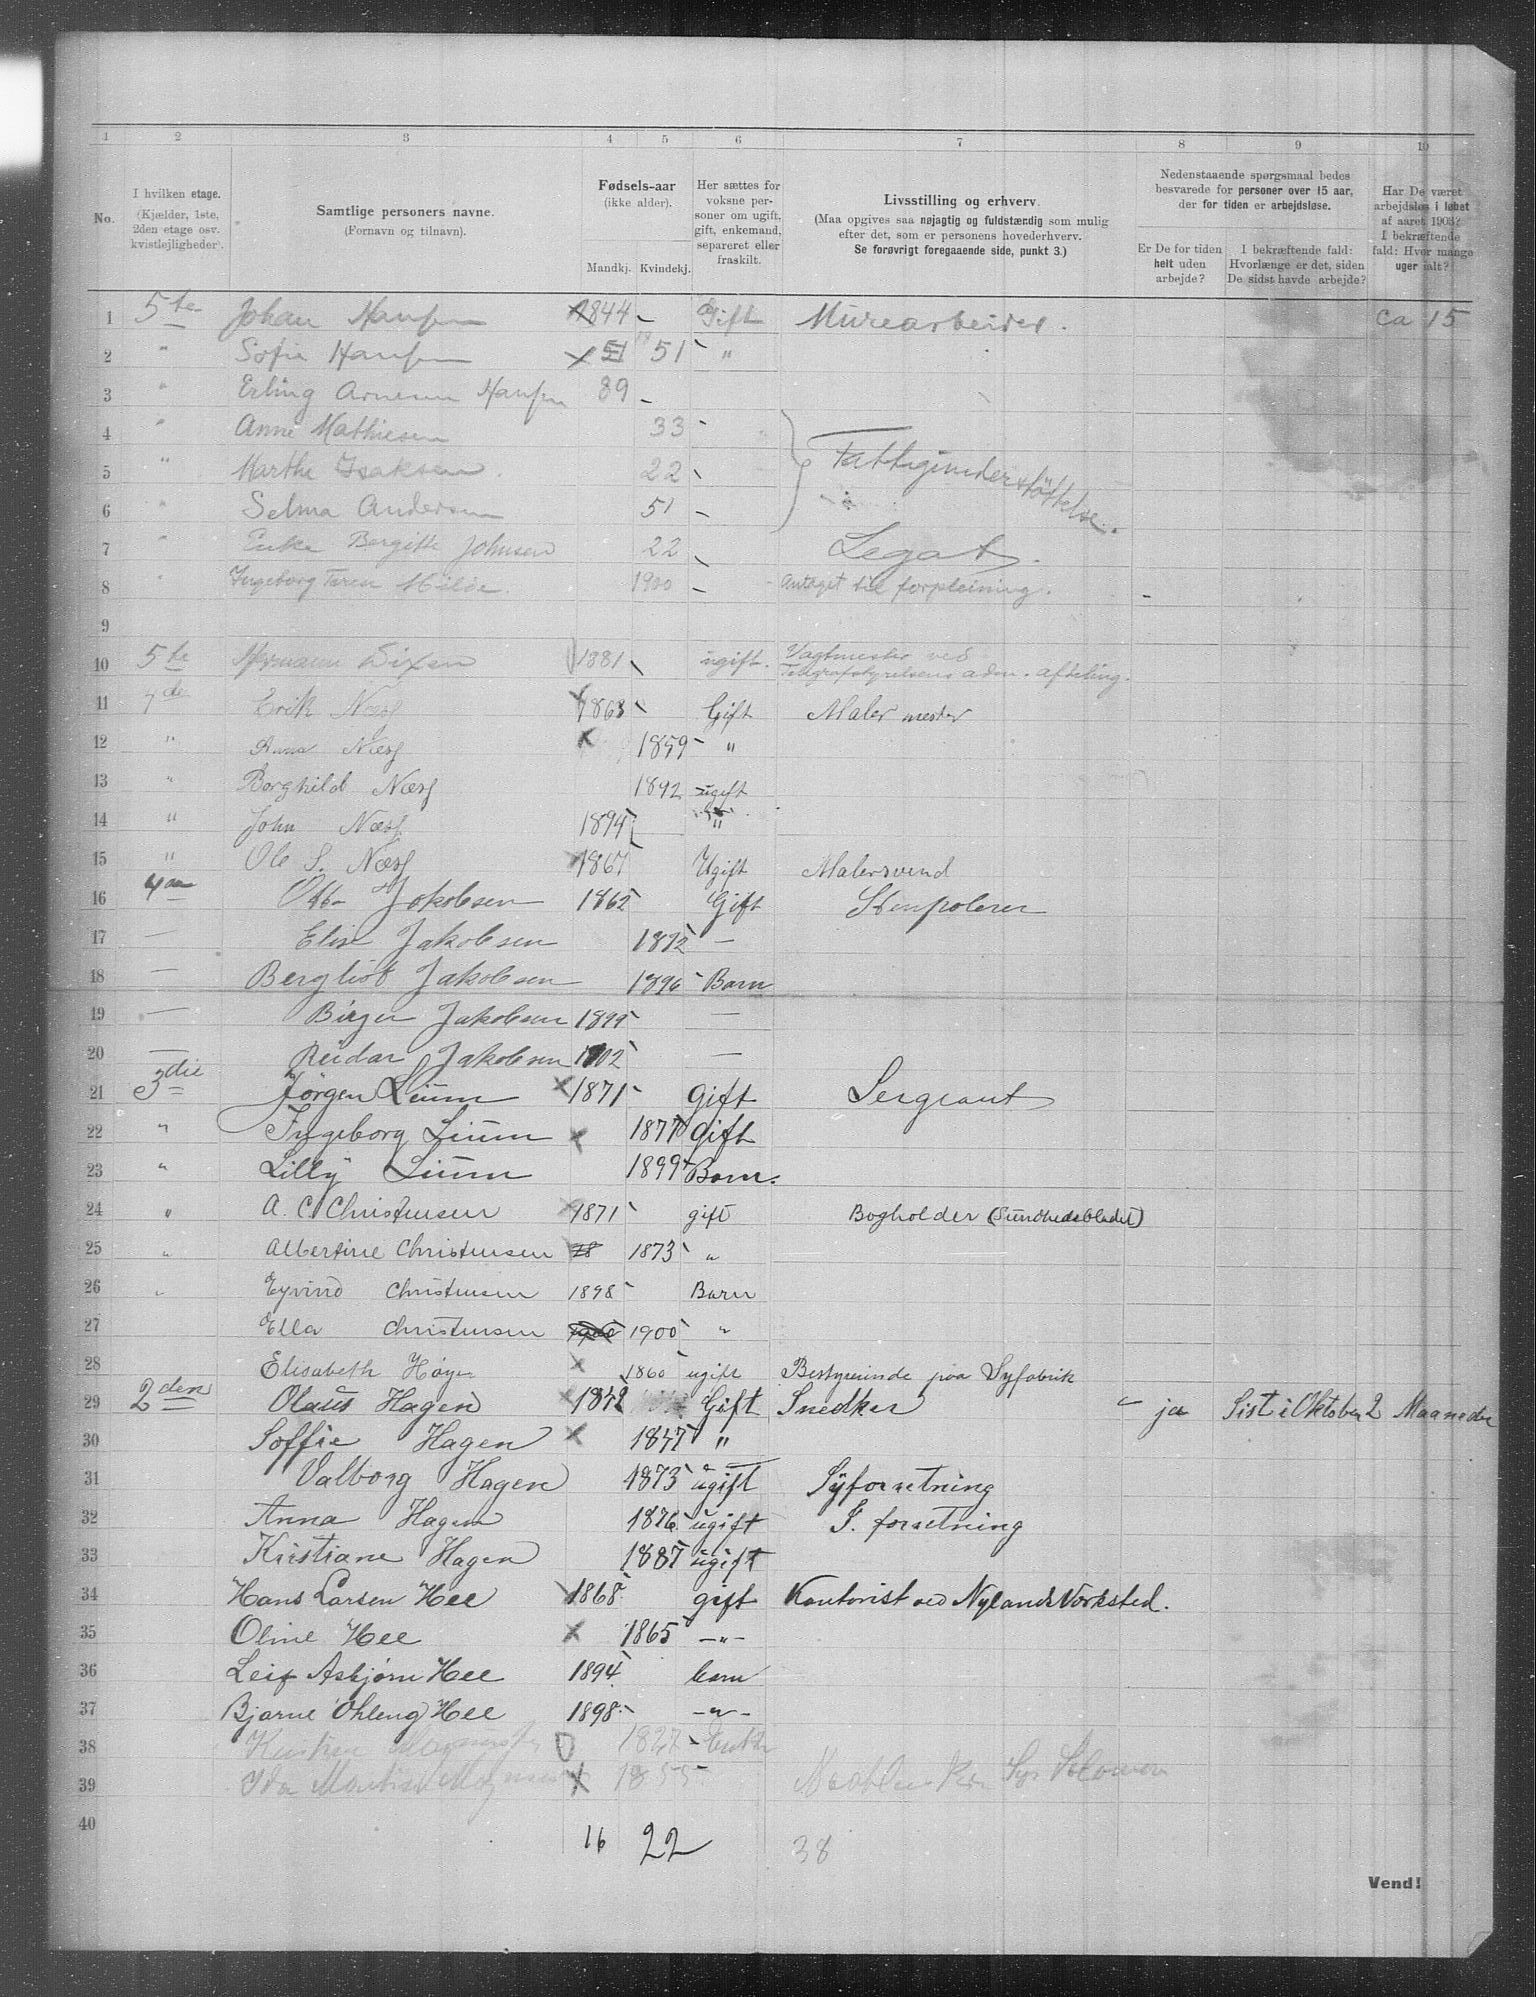 1 2 3 4 5 6 7 8 9 10
No.
I hvilken etage.
(Kjælder, 1ste,
2den etage osv.
kvistlejligheder).
Samtlige personers navne.
(Fornavn og tilnavn).
Fødsels-aar
(ikke alder).
Mandkj. Kvindekj.
Her sættes for
voksne per-
soner om ugift,
gift, enkemand,
separeret eller
fraskilt.
Livsstilling og erhverv.
(Maa opgives saa nøjagtig og fuldstændig som mulig
efter det, som er personens hovederhverv.
Se forøvrigt foregaaende side, punkt 3.)
Nedenstaaende spørgsmaal bedes
besvarede for personer over 15 aar,
der for tiden er arbejdsløse.
Er De for tiden
helt uden
arbejde?
I bekræftende fald:
Hvorlænge er det, siden
De sidst havde arbejde?
Har De været
arbejdsløs i løbet
af aaret 1903?
I bekræftende
fald: Hvor mange
uger ialt?
1 5te Johan Hansen 1844 - Gift Murearbeider. ca 15
2 " Sofie Hansen 51 51 "
3 " Erling Arnesen Hansen 89 -
4 " Anne Mathiesen 33 - Fattigunderstøttelse.
5 " Marthe Isaksen. 22 -
6 " Selma Andersen 51 -
7 " Enke Bergitte Johnsen 22 - Legat.
8 " Ingeborg 1900 - antaget til forpleining.
9
10 5te Hermann Dixen 1881 ugift. Vagtmester ved
Telegrafstyrelsens adm. afdeling.
11 1de Erik Næss 1863 Gift Maler mester
12 " Anna Næss 1859 "
13 " Borghild Næss 1892 ugift
14 " John Næss 1894 "
15 " Ole S. Næss 1867 Ugift Malersvend
16 4de Otto Jakobsen 1862 Gift Stenpolerer
17 — Elise Jakobsen 1892 —
18 — Bergliot Jakobsen 1896 Barn
19 — Birger Jakobsen 1899 —
20 — Reidar Jakobsen 1902 —
21 3die Jørgen Lium 1871 Gift Sergeant
22 " Ingeborg Lium 1877 Gift
23 " Lilly Lium 1899 Barn.
24 " A. C. Christensen 1871 gift Bogholder (Sundhedsbladet)
25 " Albertine Christensen 1873 "
26 " Eyvind Christensen 1898 Barn
27 Ella Christensen 1900 1900 "
28 Elisabeth Høyer 1860 ugift Bestyrerinde paa Syfabrik
29 2den Olaus Hagen 1842 Gift Snedker " ja Sist i Oktober 2 Maaneder
30 Soffie Hagen 1847 "
31 Valborg Hagen 1873 ugift Syforretning
32 Anna Hagen 1876 ugift S. forretning
33 Kristiane Hagen 1887 ugift
34 Hans Larsen Hee 1868 gift Kontorist ved Nylands Værksted.
35 Oline Hee 1865 —"—
36 Leif Asbjørn Hee 1894 barn
37 Bjarne Øhleng Hee 1898 —"—
38 1827 Enke
39 Ida 1855
40
16 22 38
Vend!